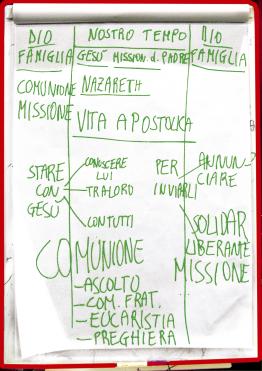 DIO NOSTRO TEMPO DIO
FAMIGLIA GESÙ MISSION. d. PADRE FAMIGLIA
COMUNIONE NAZARETH
MISSIONE
VITA APOSTOLICA
STARE CON GESÙ
CONOSCERE LUI
TRA LORO
CON TUTTI
PER INVIARLI
ANNUNCIARE
SOLIDAR LIBERANTE
COMUNIONE MISSIONE
-ASCOLTO
-COM. FRAT.
-EUCARISTIA
-PREGHIERA